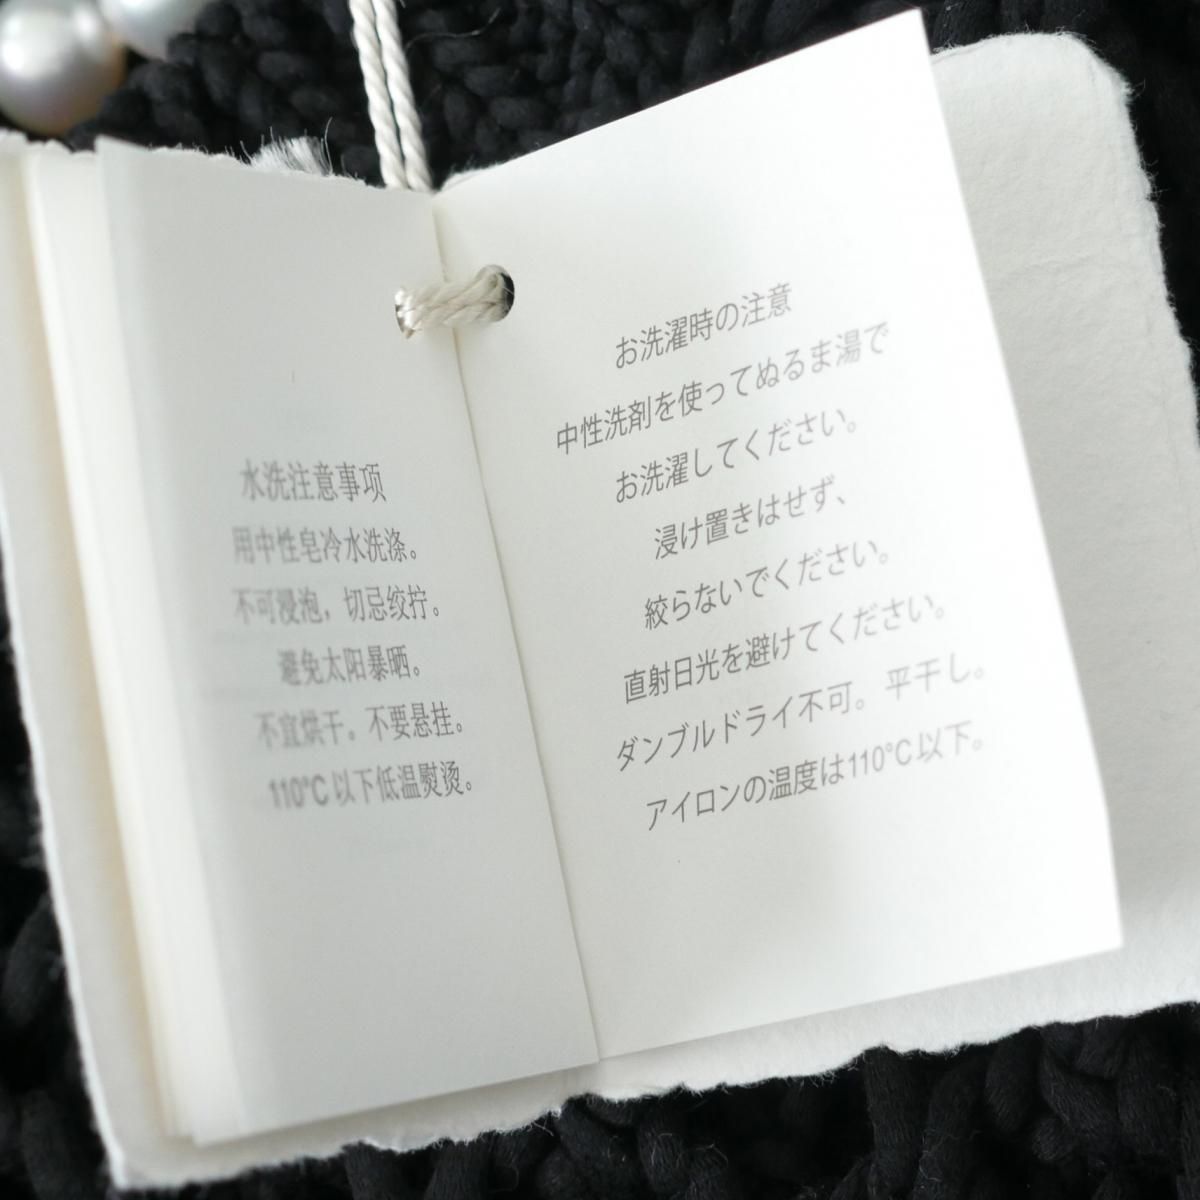 水洗注意事项
用中性皂冷水洗涤。
不可浸泡，切忌绞拧。
避免太阳暴晒。
不宜烘干。不要悬挂。
110°C 以下低温熨烫。
お洗濯時の注意
中性洗剤を使ってぬるま湯で
お洗濯してください。
浸け置きはせず、
絞らないでください。
直射日光を避けてください。
ダンブルドライ不可。平干し。
アイロンの温度は110°C以下。